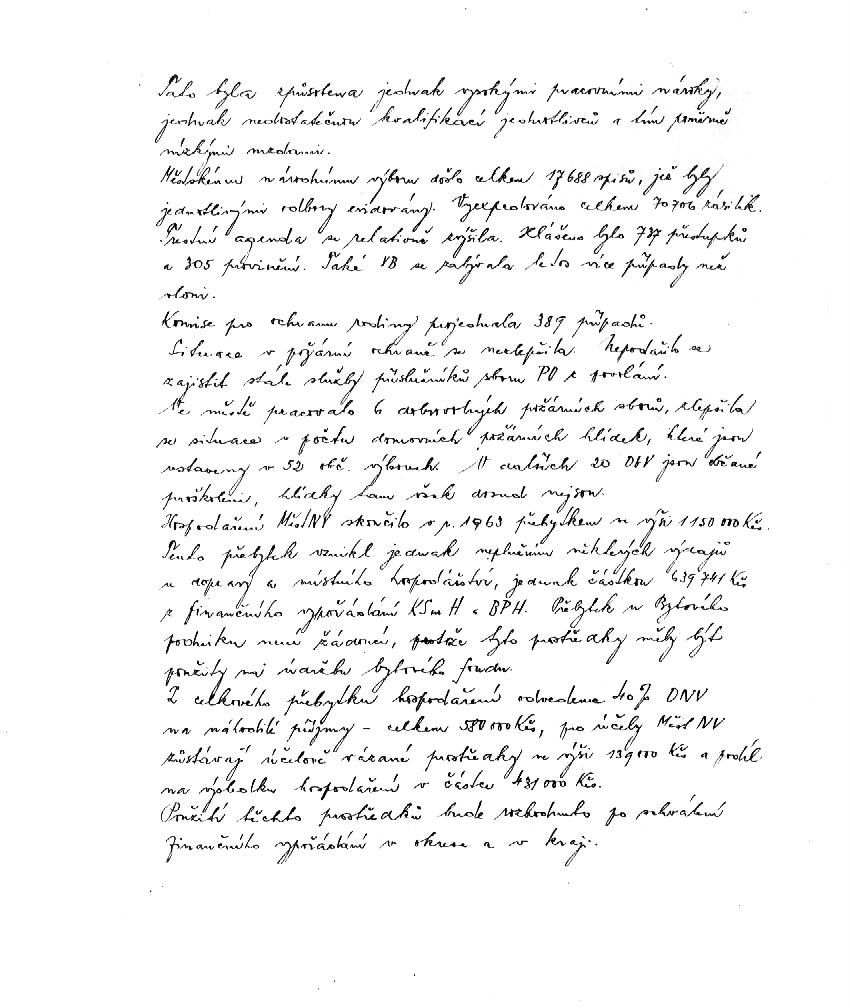 Tato byla způsobena jednak vysokými pracovními nároky,
jednak nedostatečnou kvalifikací jednotlivců a tím poměrně
nízkými mzdami.
Městskému národnímu výboru došlo celkem 17688 spisů, jež byly
jednotlivými odbory evidovány. Vyexpedováno celkem 70706 zásilek.
Trestní agenda se relativně zvýšila. Hlášeno bylo 737 přestupků
a 305 provinění. Také VB se zabývala letos více případy než
vloni.
Komise pro ochranu rodiny projednala 389 případů.
Situace v požární ochraně se nezlepšila. Nepodařilo se
zajistit stálé služby příslušníků sboru PO z povolání.
Ve městě pracovalo 6 dobrovolných požárních sborů, zlepšila
se situace v počtu domovních požárních hlídek, které jsou
ustaveny v 52 obč. výborech. V dalších 20 OBV jsou občané
proškoleni, hlídky tam však dosud nejsou.
Hospodaření MěstNV skončilo v r. 1963 přebytkem ve výši 1150 000 Kčs.
Tento přebytek vznikl jednak neplněním některých výdajů
u dopravy a místního hospodářství, jednak částkou 639 741 Kčs
z finančního vypořádání KSMH a BPH. Přebytek u Bytového
podniku není žádoucí, protože tyto prostředky měly být
použity na údržbu bytového fondu.
Z celkového přebytku hospodaření odvedeno 40% ONV
na nálohové příjmy - celkem 580 000 Kčs, pro účely MěstNV
zůstávají účelově vázané prostředky ve výši 139 000 Kčs a podíl
na výsledku hospodaření v částce 431 000 Kčs.
Použití těchto prostředků bude rozhodnuto po schválení
finančního vypořádání v okrese a v kraji.